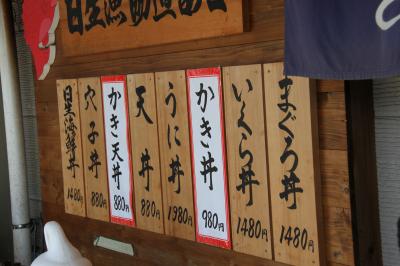 まぐろ丼
1480円
いくら丼
1480円
かき丼
980円
うに丼
1980円
天丼
880円
かき天丼
880円
穴子丼
880円
日生海鮮丼
1480円